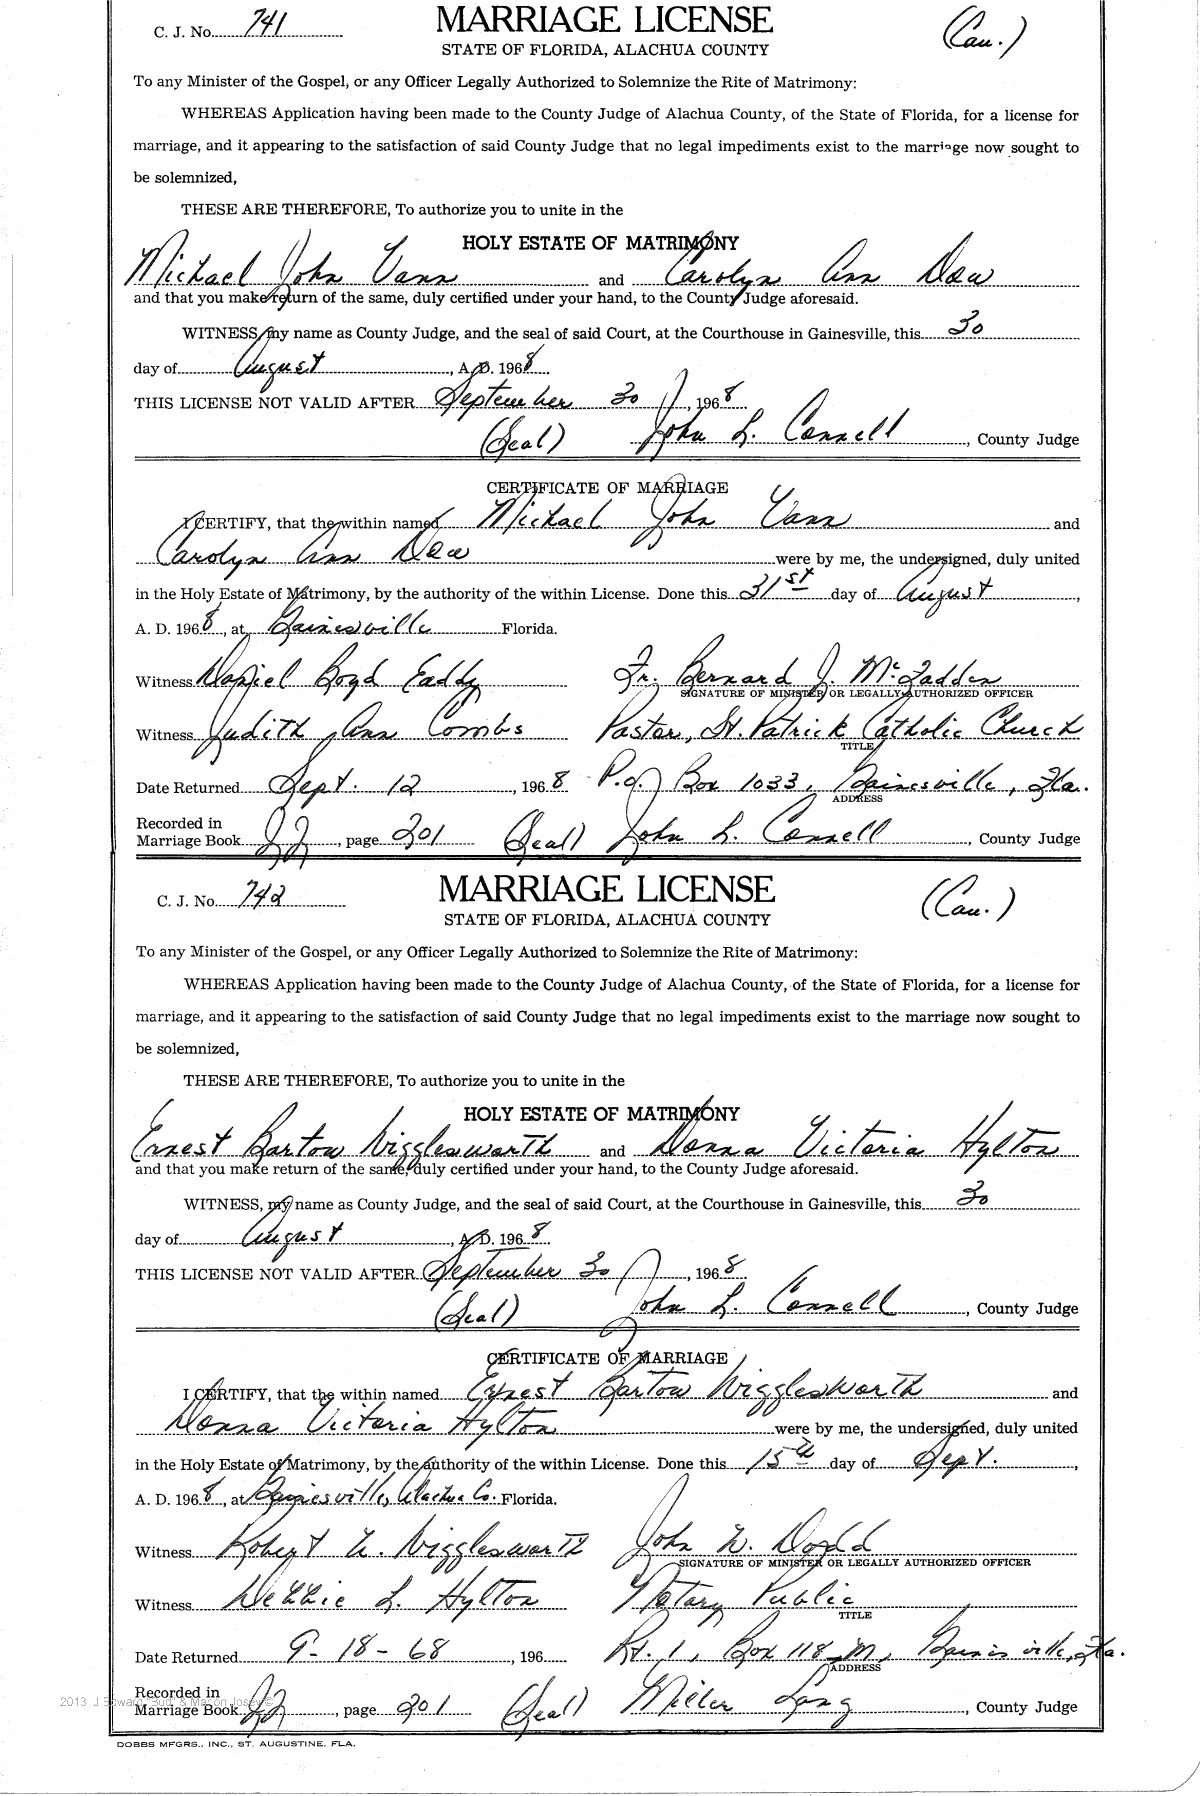 C. J. No. 741 MARRIAGE LICENSE (Cau.)
STATE OF FLORIDA, ALACHUA COUNTY
To any Minister of the Gospel, or any Officer Legally Authorized to Solemnize the Rite of Matrimony:
WHEREAS Application having been made to the County Judge of Alachua County, of the State of Florida, for a license for
marriage, and it appearing to the satisfaction of said County Judge that no legal impediments exist to the marriage now sought to
be solemnized,
THESE ARE THEREFORE, To authorize you to unite in the
HOLY ESTATE OF MATRIMONY
Michael John Vann and Carolyn Ann Dew
and that you make return of the same, duly certified under your hand, to the County Judge aforesaid.
WITNESS, my name as County Judge, and the seal of said Court, at the Courthouse in Gainesville, this 30
day of August, A. D. 1968
THIS LICENSE NOT VALID AFTER September 30, 1968
(Seal) John L. Connell, County Judge
CERTIFICATE OF MARRIAGE
I CERTIFY, that the within named Michael John Vann and
Carolyn Ann Dew were by me, the undersigned, duly united
in the Holy Estate of Matrimony, by the authority of the within License. Done this 31st day of August,
A. D. 1968, at Gainesville Florida.
Witness Daniel Boyd Eaddy Fr. Bernard J. McFadden
SIGNATURE OF MINISTER OR LEGALLY AUTHORIZED OFFICER
Witness Judith Ann Combs Pastor, St. Patrick Catholic Church
TITLE
Date Returned Sept. 12, 1968 P.O. Box 1033, Gainesville, Fla.
ADDRESS
Recorded in
Marriage Book 22, page 201 (Seal) John L. Connell, County Judge
C. J. No. 742 MARRIAGE LICENSE (Cau.)
STATE OF FLORIDA, ALACHUA COUNTY
To any Minister of the Gospel, or any Officer Legally Authorized to Solemnize the Rite of Matrimony:
WHEREAS Application having been made to the County Judge of Alachua County, of the State of Florida, for a license for
marriage, and it appearing to the satisfaction of said County Judge that no legal impediments exist to the marriage now sought to
be solemnized,
THESE ARE THEREFORE, To authorize you to unite in the
HOLY ESTATE OF MATRIMONY
Ernest Bartow Wigglesworth and Donna Victoria Hylton
and that you make return of the same, duly certified under your hand, to the County Judge aforesaid.
WITNESS, my name as County Judge, and the seal of said Court, at the Courthouse in Gainesville, this 30
day of August, A. D. 1968
THIS LICENSE NOT VALID AFTER September 30, 1968
(Seal) John L. Connell, County Judge
CERTIFICATE OF MARRIAGE
I CERTIFY, that the within named Ernest Bartow Wigglesworth and
Donna Victoria Hylton were by me, the undersigned, duly united
in the Holy Estate of Matrimony, by the authority of the within License. Done this 15th day of Sept.,
A. D. 1968, at Gainesville, Alachua Co. Florida.
Witness Robert W. Wigglesworth John W. Dodd
SIGNATURE OF MINISTER OR LEGALLY AUTHORIZED OFFICER
Witness Debbie L. Hylton Notary Public
TITLE
Date Returned 9-18-68, 196 Rt. 1, Box 118-M, Gainesville, Fla.
ADDRESS
2013 J Edward "Bud" & Marion Josey ©
Recorded in
Marriage Book 22, page 201 (Seal) Miller Lang, County Judge
DOBBS MFGRS., INC., ST. AUGUSTINE, FLA.